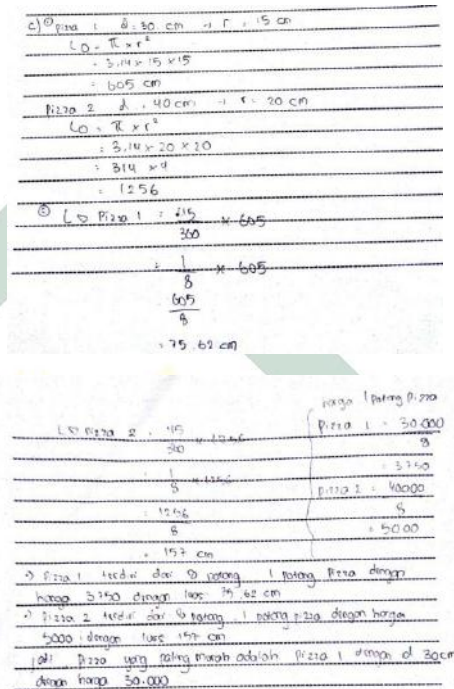 c) ① pizza 1 d = 30 cm → r = 15 cm
LO = π × r²
= 3.14 × 15 × 15
= 605 cm
Pizza 2 d = 40 cm → r = 20 cm
LO = π × r²
= 3.14 × 20 × 20
= 314 × 4
= 1256
② L Pizza 1 = 45/360 × 605
= 1/8 × 605
605/8
= 75.62 cm
L Pizza 2 = 45/360 × 1256
= 1/8 × 1256
= 1256/8
= 157 cm
harga 1 potong pizza
Pizza 1 = 30.000/8
= 3750
pizza 2 = 40000/8
= 5000
Pizza 1 terdiri dari 8 potong 1 potong Pizza dengan
harga 3750 dengan luas 75,62 cm
Pizza 2 terdiri dari 8 potong, 1 potong pizza dengan harga
5000 dengan luas 157 cm
Jadi Pizza yang paling murah adalah Pizza 1 dengan d 30cm
dengan harga 30.000